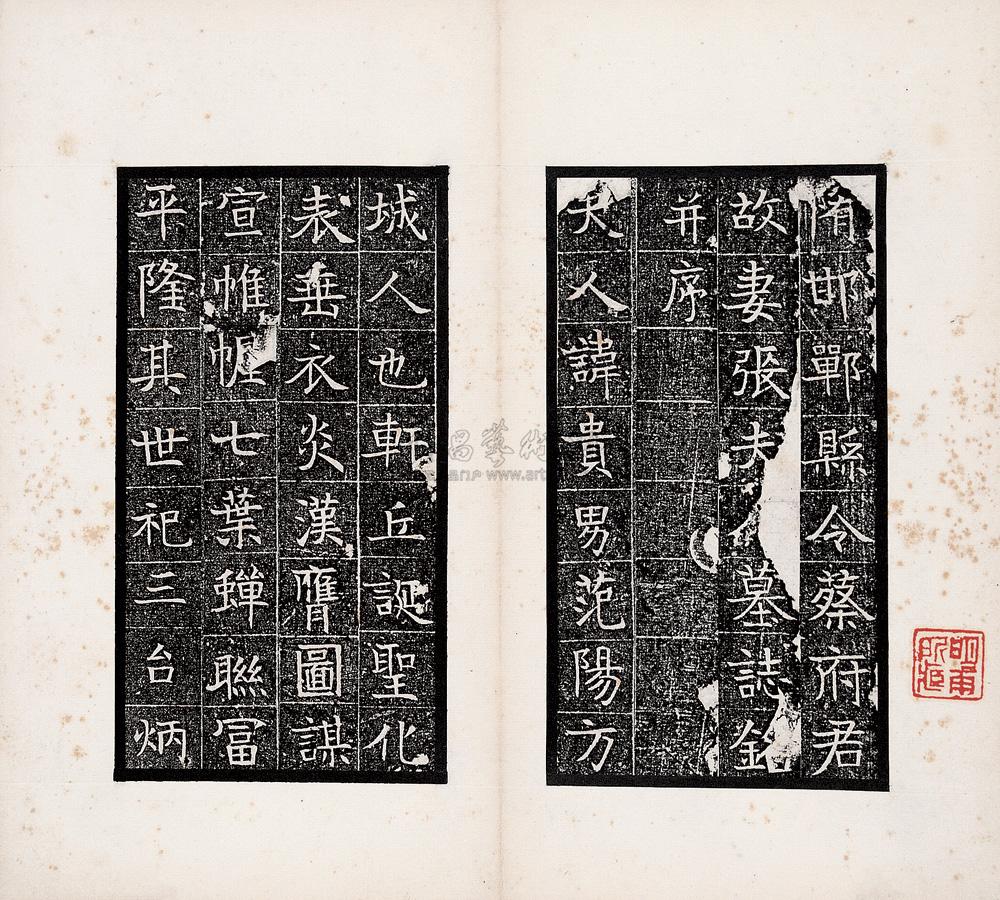 隋邯鄲縣令蔡府君
故妻張夫人墓誌銘
并序
夫人諱貴男范陽方
城人也軒丘誕聖化
表垂衣炎漢膺圖謀
宣帷幄七葉蟬聯冨
平隆其世祀三台炳
昌藝術
www.art